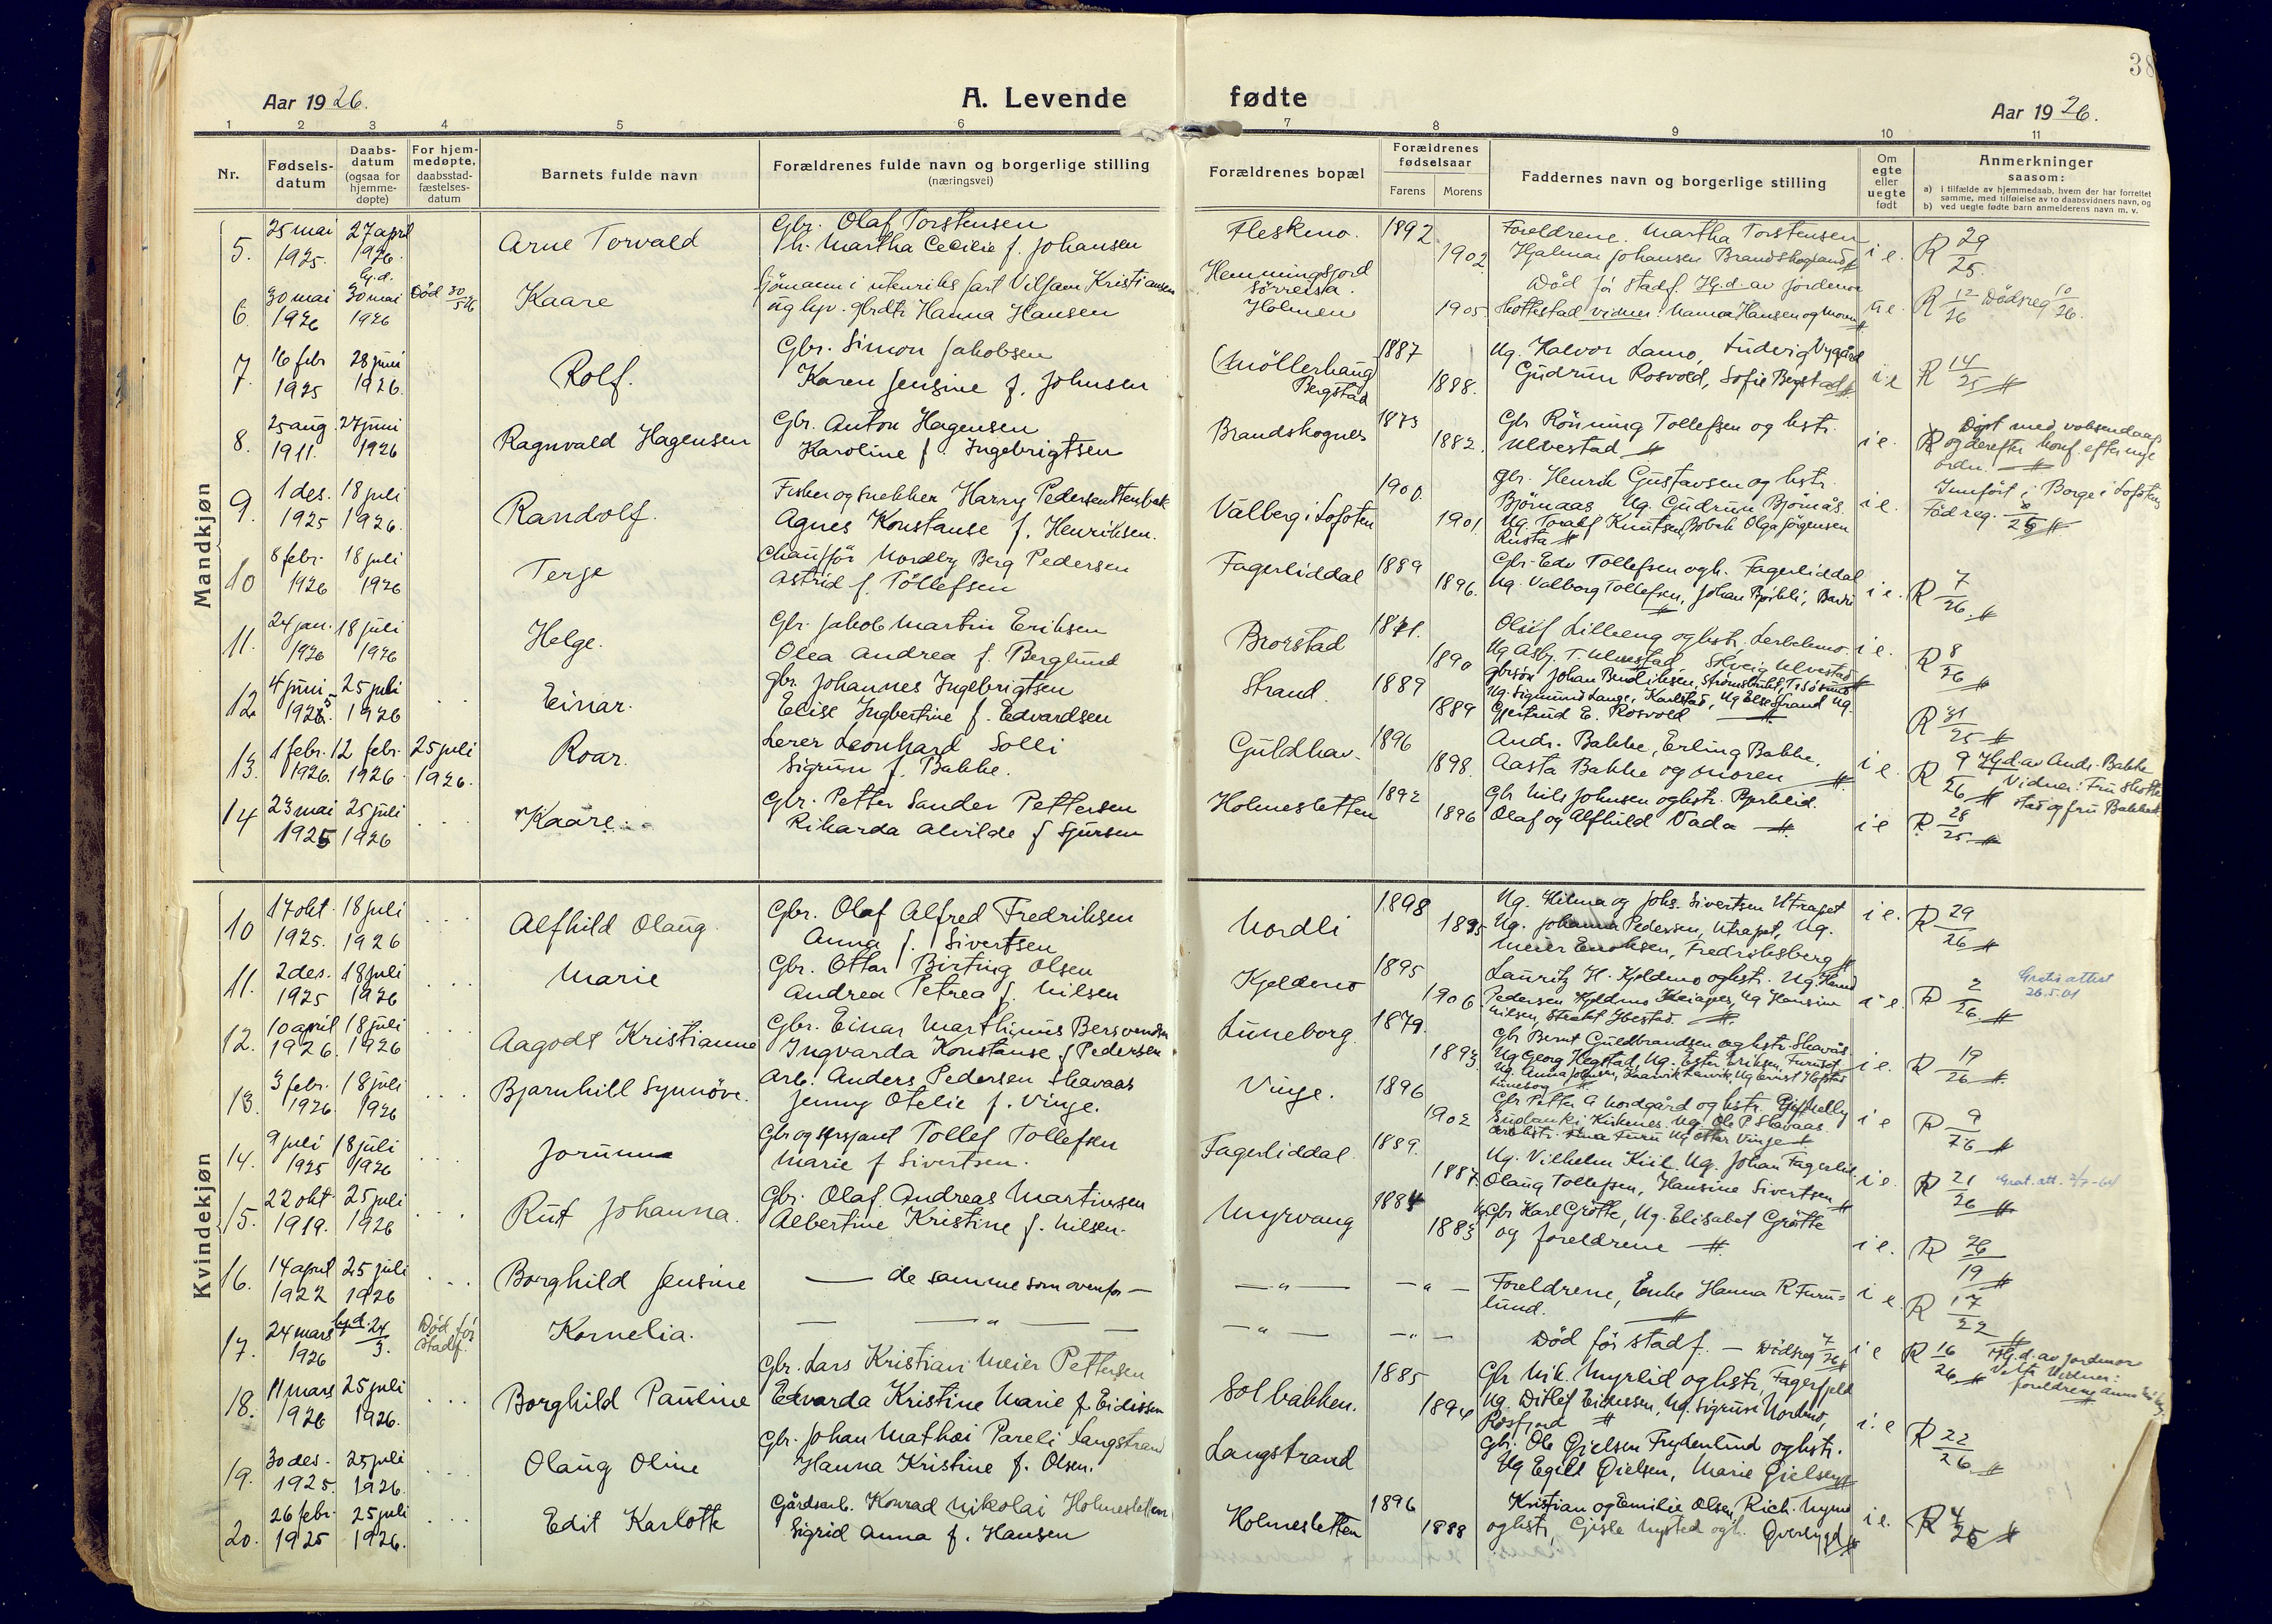 38
Aar 1926.
A. Levende fødte
Aar 1926.
1 2 3 4 5 6 7 8 9 10 11
Nr.
Fødsels-datum
Daabs-datum (ogsaa for hjemme-døpte)
For hjem-medøpte, daabsstad-fæstelses-datum
Barnets fulde navn
Forældrenes fulde navn og borgerlige stilling (næringsvei)
Forældrenes bopæl
Forældrenes fødselsaar
Farens Morens
Faddernes navn og borgerlige stilling
Om egte eller uegte født
Anmerkninger saasom:
a) i tilfælde av hjemmedaab, hvem der har forrettet samme, med tilføielse av to daabsvidners navn, og
b) ved uegte fødte barn anmelderens navn m. v.
Mandkjøn
5. 25 mai 1925. 27 april 1926. Arne Torvald
Gbr. Olaf Torstensen
h. Martha Cecilie f. Johansen
Fleskmo. 1892. 1902
Foreldrene. Martha Torstensen
Hjalmar Johansen Brandskognes
i e. R 29/25.
6. 30 mai 1926 hj.d. 30 mai 1926 Død 30/5 26 Kaare
Sjømann i utenriks fart Vilfam Kristiansen
ug hjv. gbrdtr Hanna Hansen
Hemmingsfjord Sörreisa. Holmen 1905
Död för stadf. Hj.d. av jordmor
Skottestad vidner: Hanna Hansen og moren
u e. R 12/26 Dödsreg 10/26.
7. 16 febr 1925 28 juni 1926. Rolf.
Gbr. Simon Jakobsen
Karen Jensine f. Johnsen
(Möllerhaug) Bergstad 1887 1888.
Ug. Halvor Lamo, Ludvig Nygård
Gudrun Rosvold, Sofie Bergstad
i e R 14/25
8. 25 aug. 1911. 27 juni 1926 Ragnvald Hagensen
Gbr. Anton Hagensen
Karoline f. Ingebrigtsen
Brandskognes 1873 1882.
Gbr Rönning Tollefsen og hstr.
Ulvestad
i e. Döpt med voksendaap
og derefter konf. efter nye
ordn.
9. 1 des. 1925 18 juli 1926. Randolf.
Fisker og snekker Harry Pedersen Stenbak
Agnes Konstanse f. Henriksen.
Valberg i Lofoten 1900. 1901.
Gbr. Henrik Gustavsen og hstr.
Björnaas Ug. Gudrun Björnås.
Ug. Toralf Knutsen, Bovik Olga Jörgensen
Rusta
i e. Innfört i Borge i Lofoten
Föd reg. 8/25
10 8 febr. 1926 18 juli 1926 Terje
Chaufför Nordby Berg Pedersen
Astrid f. Töllefsen
Fagerliddal 1889 1896.
Gbr. Edv Tollefsen og h. Fagerliddal
Ug. Valborg Tollefsen, Johan Bjerkli, Bardu
i e. R 7/26
11. 24 jan. 1926 18 juli 1926 Helge.
Gbr. Jakob Martin Eriksen
Olea Andrea f. Berglund
Brorstad 1871. 1890
Oluf Lilleng og hstr. Lerbekmo.
Ug Asbj. T. Ulvestad Solveig Ulvestad
i e. R 8/26
12 4 juni 1925. 25 juli 1926 Einar.
Gbr. Johannes Ingebrigtsen
Elise Ingbertine f. Edvardsen
Strand 1889 1889
Gbrsön Johan Bendiksen, Strømsbukt, Tisösund
Ug. Sigmund Lange, Karlstad, Ug Else Strand Ug.
Gjertrud E. Rosvold
R 31/25
13. 1 febr. 1926. 12 febr. 1926 25 juli 1926. Roar.
Lerer Leonhard Solli
Sigrun f. Bakke.
Guldhav. 1896 1898.
Andr. Bakke, Erling Bakke.
Aasta Bakke og moren
i e. R 9/26 Hj.d. av Andr. Bakke
Vidner: Fru Skotte
stad og fru Bakke
14 23 mai 1925 25 juli 1926 Kaare.
Gbr. Petter Sander Pettersen
Rikarda Alvilde f Sjursen
Holmesletten 1892 1896
Gbr Nils Johnsen og hstr. Bjerkleid.
Olaf og Alfhild Vada
i e R. 28/25
Kvindekjøn
10 17 okt 1925. 18 juli 1926 Alfhild Olaug.
Gbr. Olaf Alfred Fredriksen
Anna f. Sivertsen
Nordli 1898 1895
Ug. Hilma og Johs. Sivertsen Utrapet
Ug. Johanna Pedersen, Utrapet, Ug.
Meier Enoksen, Fredriksberg
i e. R 29/26
11. 2 des. 1925 18 juli 1926 Marie
Gbr. Ottar Birting Olsen
Andrea Petrea f. Nilsen
Kjeldmo 1895 1906
Lauritz H. Kjeldmo og hstr. Ug.
Pedersen Kjeldmo Ug Hansine
Nilsen, Ibestad.
i e. R 2/26 Gratis attest
26.5.01
12. 10 april 1926. 18 juli 1926 Aagodt Kristianne
Gbr. Einar Marthinus Bersvendsen
Ingvarda Konstanse f Pedersen
Luneborg 1879. 1893.
Gbr Bernt Guldbrandsen og hstr. Skavås
Ug Georg Hegstad, Ug. Ester Eriksen, Furuset
Ug. Anna Johnsen, Ug Ernst Hofstad
Luneborg
i e. R 19/26
13. 3 febr. 1926. 18 juli 1926 Bjarnhill Synnöve.
Arb. Anders Pedersen Skavaas
Jenny Otelie f. Vinje.
Vinje. 1896 1902
Gbr Petter A Nordgård og hstr. Nelly
Kirkenes. Ug. Ole P. Skavaas.
Furu Ug Ottar Vinje
i e R 9/26
14. 9 juli 1925 18 juli 1926 Jorunn
Gbr og sersjant Tollef Tollefsen
Marie f Sivertsen.
Fagerliddal 1889. 1887.
Ug. Vilhelm Kiil. Ug. Johan Fagerlid
Olaug Tollefsen, Hansine Sivertsen
i e. R 21/26 Grat. att. 2/7-64
15. 22 okt 1919. 25 juli 1926 Rut Johanna.
Gbr. Olaf Andreas Martinsen
Albertine Kristine f. Nilsen.
Myrvang 1884 1883
Gbr Karl Grötte, Ug. Elisabet Grötte
og foreldrene
i e. R 26/19
16. 14 april 1922 25 juli 1926 Borghild Jensine
— de samme som ovenfor —
— " — — " —
Foreldrene, Enke Hanna R Furu=
lund.
i e. R 17/22
17. 24 mars 1926 hj.d. 24/3. Död för stadf. Kornelia.
— — " — —
— " — — " —
Död för stadf. — Dödsreg 7/26
i e R 16/26 Hj.d. av jordmor
Vidner:
foreldrene
18. 11 mars 1926 25 juli 1926. Borghild Pauline
Gbr. Lars Kristian Meier Pettersen
Edvarda Kristine Marie f. Eidissen
Solbakken. 1885 1894
Gbr Nik. Myrlid og hstr, Fagerfjeld
Ug. Ditlef Eidissen, Ug. Sigrun Nordmo,
Rosfjord
i e R 22/26
19. 30 des. 1925. 25 juli 1926. Olaug Oline
Gbr. Johan Mathæi Pareli Langstrand
Hanna Kristine f. Olsen.
Langstrand
Gbr. Ole Gjelsen Frydenlund og hstr.
Ug Egill Gjelsen, Marie Gjelsen
20. 26 febr. 1925 25 juli 1926. Edit Karlotte
Gårdsarb. Konrad Nikolai Holmesletten
Sigrid Anna f. Hansen
Holmesletten 1896 1888
Kristian og Emilie Olsen, Rich. Nymo
og hstr, Gisle Nysted og h. Överbygd
i e. R 4/25